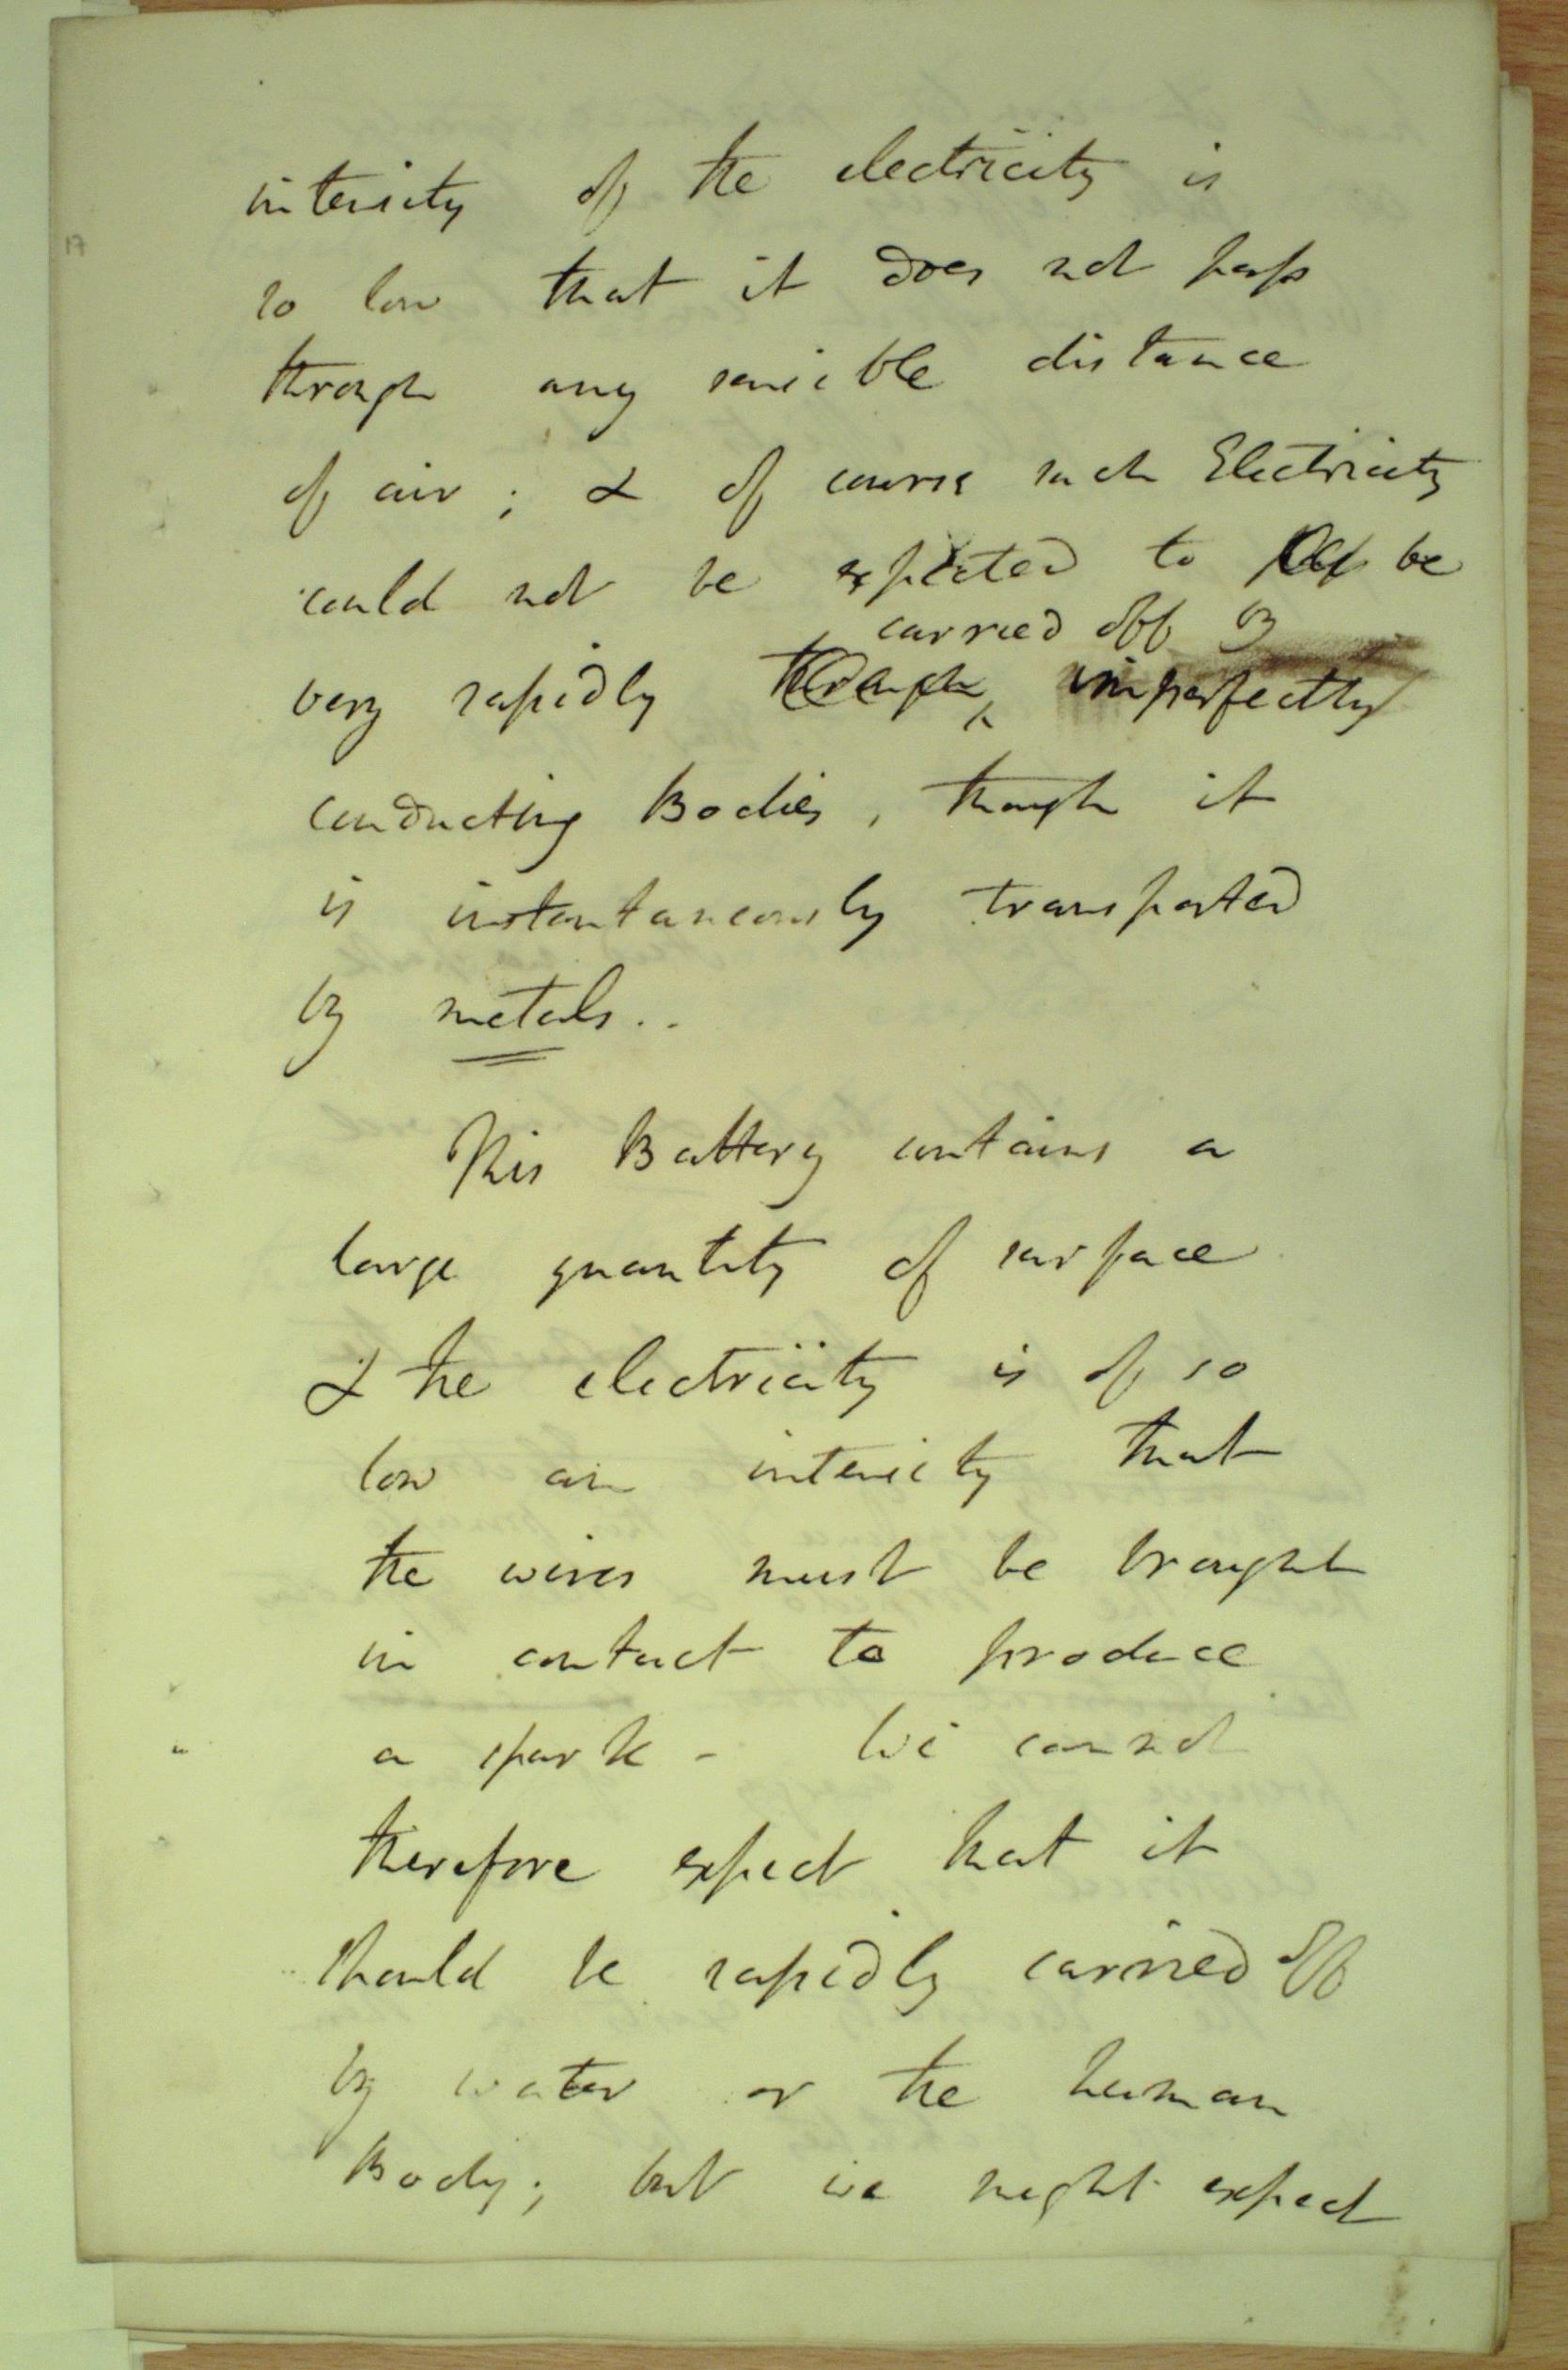 17
intensity of the electricity is
so low that it does not pass
through any sensible distance
of air ; & of course such Electricity
could not be expected to be
carried off by
very rapidly through imperfectly
conducting Bodies , though it
is instantaneously transported
by metals..
This Battery contains a
large quantity of surface
& the electricity is of so
low an intensity that
the wires must be brought
in contact to produce
a spark - We cannot
therefore expect that it
should be rapidly carried off
by water or the human
Body; but we might expect